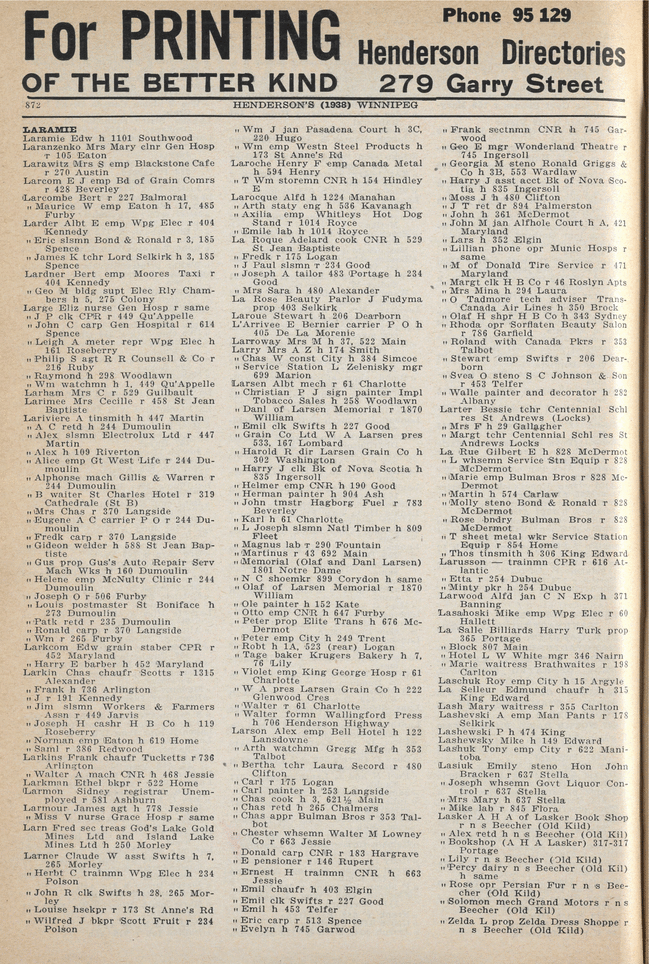 For PRINTING
OF THE BETTER KIND
Phone 95 129
Henderson Directories
279 Garry Street
872
HENDERSON'S (1938) WINNIPEG
LARAMIE
Laramie Edw h 1101 Southwood
Laranzenko Mrs Mary clnr Gen Hosp
r 105 Eaton
Larawitz Mrs S emp Blackstone Cafe
r 270 Austin
Larcom E J emp Bd of Grain Comrs
r 428 Beverley
Larcombe Bert r 227 Balmoral
" Maurice W emp Eaton h 17, 485
Furby
Larder Albt E emp Wpg Elec r 404
Kennedy
" Eric slsmn Bond & Ronald r 3, 185
Spence
" James K tchr Lord Selkirk h 3, 185
Spence
Lardner Bert emp Moores Taxi r
404 Kennedy
" Geo M bldg supt Elec Rly Cham-
bers h 5, 275 Colony
Large Eliz nurse Gen Hosp r same
" J P clk CPR r 449 Qu'Appelle
" John C carp Gen Hospital r 614
Spence
" Leigh A meter repr Wpg Elec h
161 Roseberry
" Philip S agt R R Counsell & Co r
216 Ruby
" Raymond h 298 Woodlawn
" Wm watchmn h 1, 449 Qu'Appelle
Larham Mrs C r 529 Guilbault
Larimee Mrs Cecille r 458 St Jean
Baptiste
Lariviere A tinsmith h 447 Martin
" A C retd h 244 Dumoulin
" Alex slsmn Electrolux Ltd r 447
Martin
" Alex h 109 Riverton
" Alice emp Gt West Life r 244 Du-
moulin
" Alphonse mach Gillis & Warren r
244 Dumoulin
" B waiter St Charles Hotel r 319
Cathedrale (St B)
" Mrs Chas r 370 Langside
" Eugene A C carrier P O r 244 Du-
moulin
" Fredk carp r 370 Langside
" Gideon welder h 588 St Jean Bap-
tiste
" Gus prop Gus's Auto Repair Serv
Mach Wks h 160 Dumoulin
" Helene emp McNulty Clinic r 244
Dumoulin
" Joseph O r 506 Furby
" Louis postmaster St Boniface h
273 Dumoulin
" Patk retd r 235 Dumoulin
" Ronald carp r 370 Langside
" Wm r 265 Furby
Larkcom Edw grain staber CPR r
452 Maryland
" Harry E barber h 452 Maryland
Larkin Chas chaufr Scotts r 1315
Alexander
" Frank h 736 Arlington
" J r 191 Kennedy
" Jim slsmn Workers & Farmers
Assn r 449 Jarvis
" Joseph H cashr H B Co h 119
Roseberry
" Norman emp Eaton h 619 Home
" Saml r 386 Redwood
Larkins Frank chaufr Tucketts r 736
Arlington
" Walter A mach CNR h 468 Jessie
Larkman Ethel bkpr r 522 Home
Larmon Sidney registrar Unem-
ployed r 581 Ashburn
Larmour James agt h 778 Jessie
" Miss V nurse Grace Hosp r same
Larn Fred sec treas God's Lake Gold
Mines Ltd and Island Lake
Mines Ltd h 250 Morley
Larner Claude W asst Swifts h 7,
265 Morley
" Herbt C trainmn Wpg Elec h 234
Polson
" John R clk Swifts h 28, 265 Mor-
ley
" Louise hsekpr r 173 St Anne's Rd
" Wilfred J bkpr Scott Fruit r 234
Polson
" Wm J jan Pasadena Court h 3C,
220 Hugo
" Wm emp Westn Steel Products h
173 St Anne's Rd
Laroche Henry F emp Canada Metal
h 594 Henry
" T Wm storemn CNR h 154 Hindley
E
Larocque Alfd h 1224 Manahan
" Arth staty eng h 536 Kavanagh
" Axilia emp Whitleys Hot Dog
Stand r 1014 Royce
" Emile lab h 1014 Royce
La Roque Adelard cook CNR h 529
St Jean Baptiste
" Fredk r 175 Logan
" J Paul slsmn r 234 Good
" Joseph A tailor 483 Portage d 234
Good
" Mrs Sara h 480 Alexander
La Rose Beauty Parlor J Fudyma
prop 403 Selkirk
Laroue Stewart h 206 Dearborn
L'Arrive E Bernier carrier P O h
405 De La Morenie
Larroway Mrs M h 37, 522 Main
Larry Mrs A Z h 174 Smith
" Chas W const City h 384 Simcoe
" Service Station L Zelenisky mgr
699 Marion
Larsen Albt mech r 61 Charlotte
" Christian P J sign painter Impl
Tobacco Sales h 258 Woodlawn
" Danl of Larsen Memorial r 1870
William
" Emil clk Swifts h 227 Good
" Grain Co Ltd W A Larsen pres
533, 167 Lombard
" Harold R dir Larsen Grain Co h
302 Washington
" Harry J clk Bk of Nova Scotia h
835 Ingersoll
" Helmer emp CNR h 190 Good
" Herman painter h 904 Ash
" John tmstr Hagborg Fuel r 783
Beverley
" Karl h 61 Charlotte
" L Joseph slsmn Natl Timber h 809
Fleet
" Magnus lab r 290 Fountain
" Martinus r 43 692 Main
" Memorial (Olaf and Danl Larsen)
1801 Notre Dame
" N C shoemkr 899 Corydon h same
" Olaf of Larsen Memorial r 1870
William
" Ole painter h 152 Kate
" Otto emp CNR h 647 Furby
" Peter prop Elite Trans h 676 Mc-
Dermot
" Peter emp City h 249 Trent
" Robt h 1A, 523 (rear) Logan
" Tage baker Krugers Bakery h 7,
76 Lily
" Violet emp King George Hosp r 61
Charlotte
" W A pres Larsen Grain Co h 222
Glenwood Cres
" Walter r 61 Charlotte
" Walter formn Wallingford Press
h 706 Henderson Highway
Larson Alex emp Bell Hotel h 122
Lansdowne
" Arth watchmn Gregg Mfg h 353
Talbot
" Bertha tchr Laura Secord r 480
Clifton
" Carl r 175 Logan
" Carl painter h 253 Langside
" Chas cook h 3, 621½ Main
" Chas retd h 265 Chalmers
" Chas appr Bulman Bros r 353 Tal-
bot
" Chester whsemn Walter M Lowney
Co r 663 Jessie
" Donald carp CNR r 183 Hargrave
" E pensioner r 146 Rupert
" Ernest H trainmn CNR h 663
Jessie
" Emil chaufr h 403 Elgin
" Emil clk Swifts r 227 Good
" Emil h 453 Telfer
" Eric carp r 513 Spence
" Evelyn h 745 Garwod
" Frank sectnmn CNR h 745 Gar-
wood
" Geo E mgr Wonderland Theatre r
745 Ingersoll
" Georgia M steno Ronald Griggs &
Co h 3B, 553 Wardlaw
" Harry J asst acct Bk of Nova Sco-
tia h 835 Ingersoll
" Moss J h 480 Clifton
" J T ret dr 894 Palmerston
" John h 361 McDermot
" John M jan Alfhole Court h A, 421
Maryland
" Lars h 352 Elgin
" Lillian phone opr Munic Hosps r
same
" M of Donald Tire Service r 471
Maryland
" Margt clk H B Co r 46 Roslyn Apts
" Mrs Mina h 294 Laura
" O Tadmore tech adviser Trans-
Canada Air Lines h 350 Brock
" Olaf H shpr H B Co h 343 Sydney
" Rhoda opr Sorflaten Beauty Salon
r 786 Garfield
" Roland with Canada Pkrs r 353
Talbot
" Stewart emp Swifts r 206 Dear-
born
" Svea O steno S C Johnson & Son
r 453 Telfer
" Walle painter and decorator h 282
Albany
Larter Bessie tchr Centennial Schl
res St Andrews (Locks)
" Mrs F h 29 Gallagher
" Margt tchr Centennial Schl res St
Andrews Locks
La Rue Gilbert E h 828 McDermot
" L whsemn Service Stn Equip r 828
McDermot
" Marie emp Bulman Bros r 828 Mc-
Dermot
" Martin h 574 Carlaw
" Molly steno Bond & Ronald r 828
McDermot
" Rose bndry Bulman Bros r 828
McDermot
" T sheet metal wkr Service Station
Equip r 854 Home
" Thos tinsmith h 306 King Edward
Larusson — trainmn CPR r 616 At-
lantic
" Etta r 254 Dubuc
" Minty pkr h 254 Dubuc
Larwood Alfd jan C N Exp h 371
Banning
Lasahoski Mike emp Wpg Elec r 60
Hallett
La Salle Billiards Harry Turk prop
365 Portage
" Block 807 Main
" Hotel L W White mgr 346 Nairn
" Marie waitress Brathwaites r 198
Carlton
Laschuk Roy emp City h 15 Argyle
La Selleur Edmund chaufr h 315
King Edward
Lash Mary waitress r 355 Carlton
Lashevski A emp Man Pants r 178
Selkirk
Lashewski P h 474 King
Lashewsky Mike h 149 Edward
Lashuk Tony emp City r 622 Mani-
toba
Lasiuk Emily steno Hon John
Bracken r 637 Stella
" Joseph whsemn Govt Liquor Con-
trol r 637 Stella
" Mrs Mary h 637 Stella
" Mike lab r 845 Flora
Lasker A H A of Lasker Book Shop
r n s Beecher (Old Kild)
" Alex retd h n s Beecher (Old Kil)
" Bookshop (A H A Lasker) 317-317
Portage
" Lily r n s Beecher (Old Kild)
" Percy dairy n s Beecher (Old Kil)
h same
" Rose opr Persian Fur r n s Bee-
cher (Old Kild)
" Solomon mech Grand Motors r n s
Beecher (Old Kil)
" Zelda L prop Zelda Dress Shoppe r
n s Beecher (Old Kil)